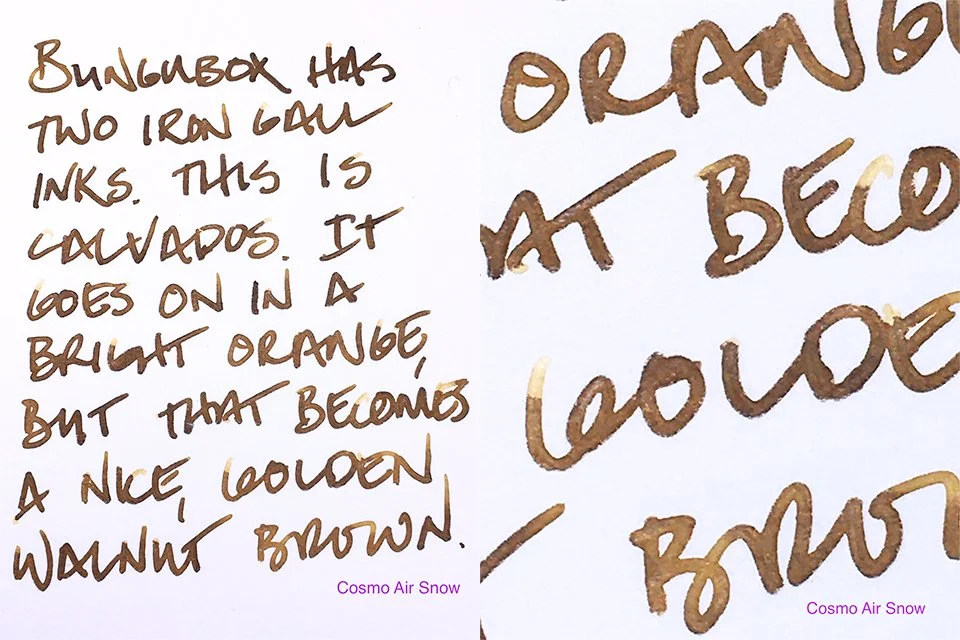 BUNGUBOX HAS
TWO IRON GALL
INKS. THIS IS
CALVADOS. IT
GOES ON IN A
BRIGHT ORANGE,
BUT THAT BECOMES
A NICE, GOLDEN
WALNUT BROWN.
Cosmo Air Snow
ORANG
AT BECO
GOLDE
BROW
Cosmo Air Snow